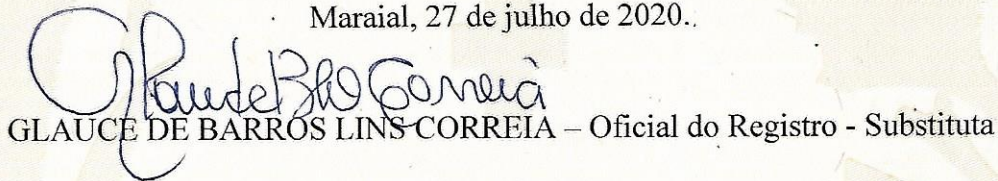 Maraial, 27 de julho de 2020.
GLAUCE DE BARROS LINS CORREIA – Oficial do Registro - Substituta